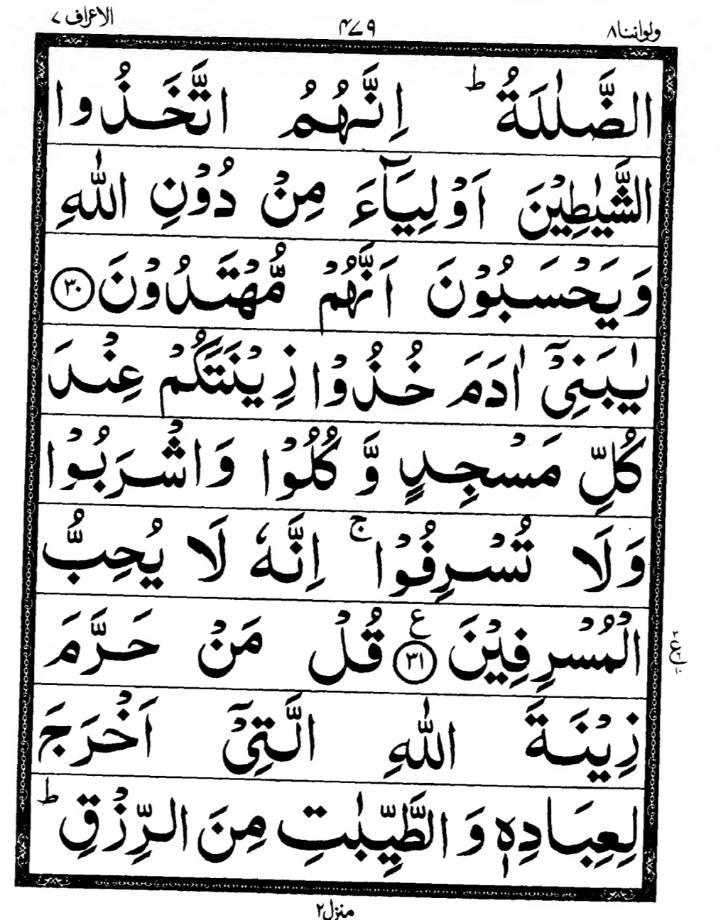 ولواننا٨ ۴۷۹ الاعراف ٧
الضَّلٰلَةُ ؕ اِنَّهُمُ اتَّخَذُوا
الشَّيٰطِيْنَ اَوْلِيَآءَ مِنْ دُوْنِ اللّٰهِ
وَيَحْسَبُوْنَ اَنَّهُمْ مُّهْتَدُوْنَ ﴿۳۰﴾
يٰبَنِيْۤ اٰدَمَ خُذُوْا زِيْنَتَكُمْ عِنْدَ
كُلِّ مَسْجِدٍ وَّ كُلُوْا وَاشْرَبُوْا
وَلَا تُسْرِفُوْا ۚ اِنَّهٗ لَا يُحِبُّ
الْمُسْرِفِيْنَ ﴿۳۱﴾ ع قُلْ مَنْ حَرَّمَ
زِيْنَةَ اللّٰهِ الَّتِيْۤ اَخْرَجَ
لِعِبَادِهٖ وَ الطَّيِّبٰتِ مِنَ الرِّزْقِ ؕ
منزل٢